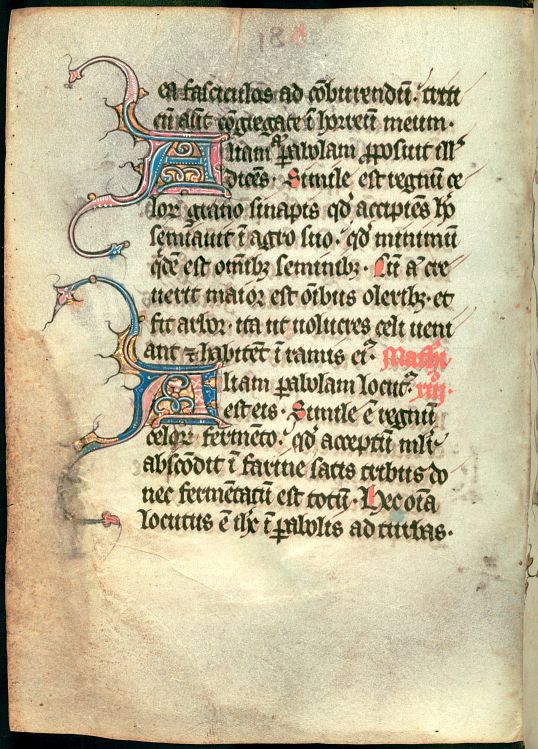 ea fasciculos ad cōburendū. triti
cū aūt cōgregate ī horreū meum.
Aliam parabolam proposuit illꝭ
dicēs. Simile est regnū ce
loꝝ grano sinapis qd̄ accipiēs hō
seminauit ī agro suo. qd̄ minimū
qdē est om̄ibꝫ seminibꝫ. Cū aͤ cre
uerit maior est oībus oleribꝫ. et
fit arbor. ita ut uolucres celi ueni
ant ⁊ habitēt ī ramis eiꝰ. Mathi
Aliam ꝑabolam locutꝰ xiij.
est eis. Simile ē regnū
celoꝝ fermēto. qd̄ acceptū muli
abscōdit ī farine satis tribus do
nec fermētatū est totū. Hec oīa
locutus ē ihc̄ ī ꝑabolis ad turbas.